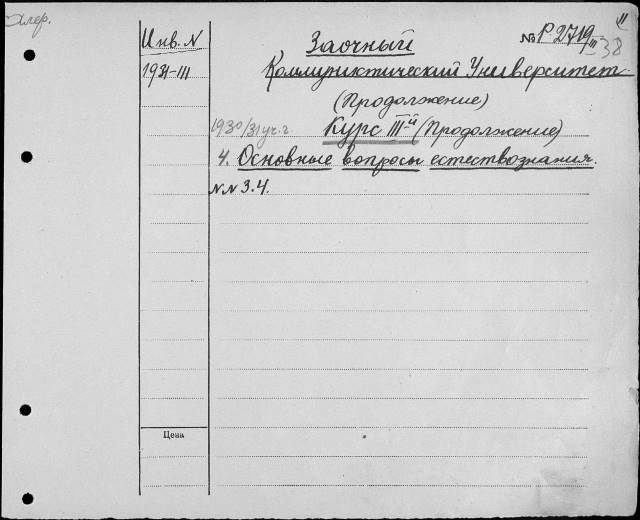 Инв. N
1931-III
Заочный
№ P 2719/III
38
Коммунистический Университет
(Продолжение)
1930/31 уч. г. Курс III-й (Продолжение)
4. Основные вопросы естествознания.
NN 3.4.
Цена